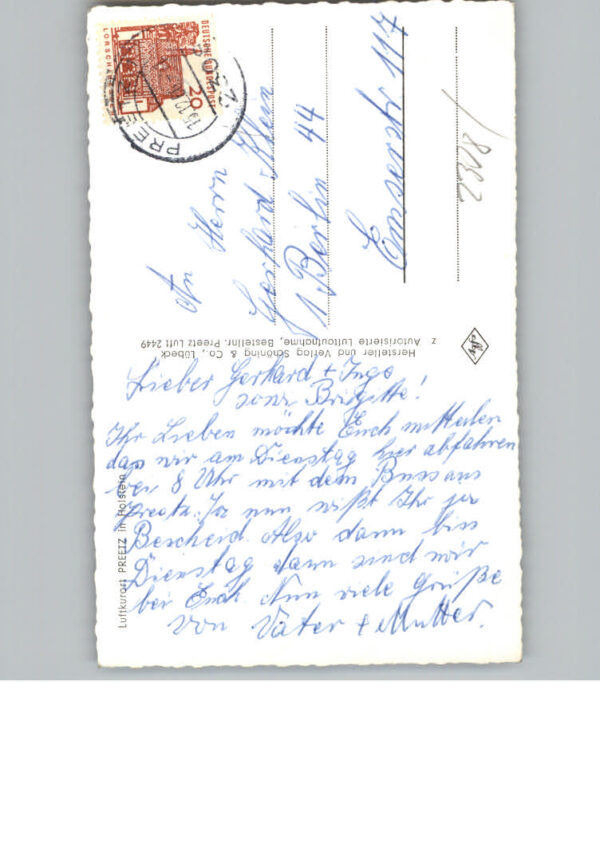 DEUTSCHE BUNDESPOST
20
LORSCH
PREETZ
An Herrn
Gerhard Klein
1 Berlin 44
Emserstr 117
Hersteller und Verlag Schöning & Co., Lübeck
z Autorisierte Luftaufnahme, Bestellnr. Preetz Luft 2449
Luftkurort PREETZ in Holstein
Lieber Gerhard + Inge
sowie Brigitte!
Ihr Lieben möchte Euch mitteilen
das wir am Dienstag hier abfahren
8 Uhr mit dem Buss aus
Preetz. So nun wißt Ihr ja
Bescheid. Also dann bis
Dienstag dann sind wir
bei Euch. Nun viele Grüße
von Vater + Mutter.